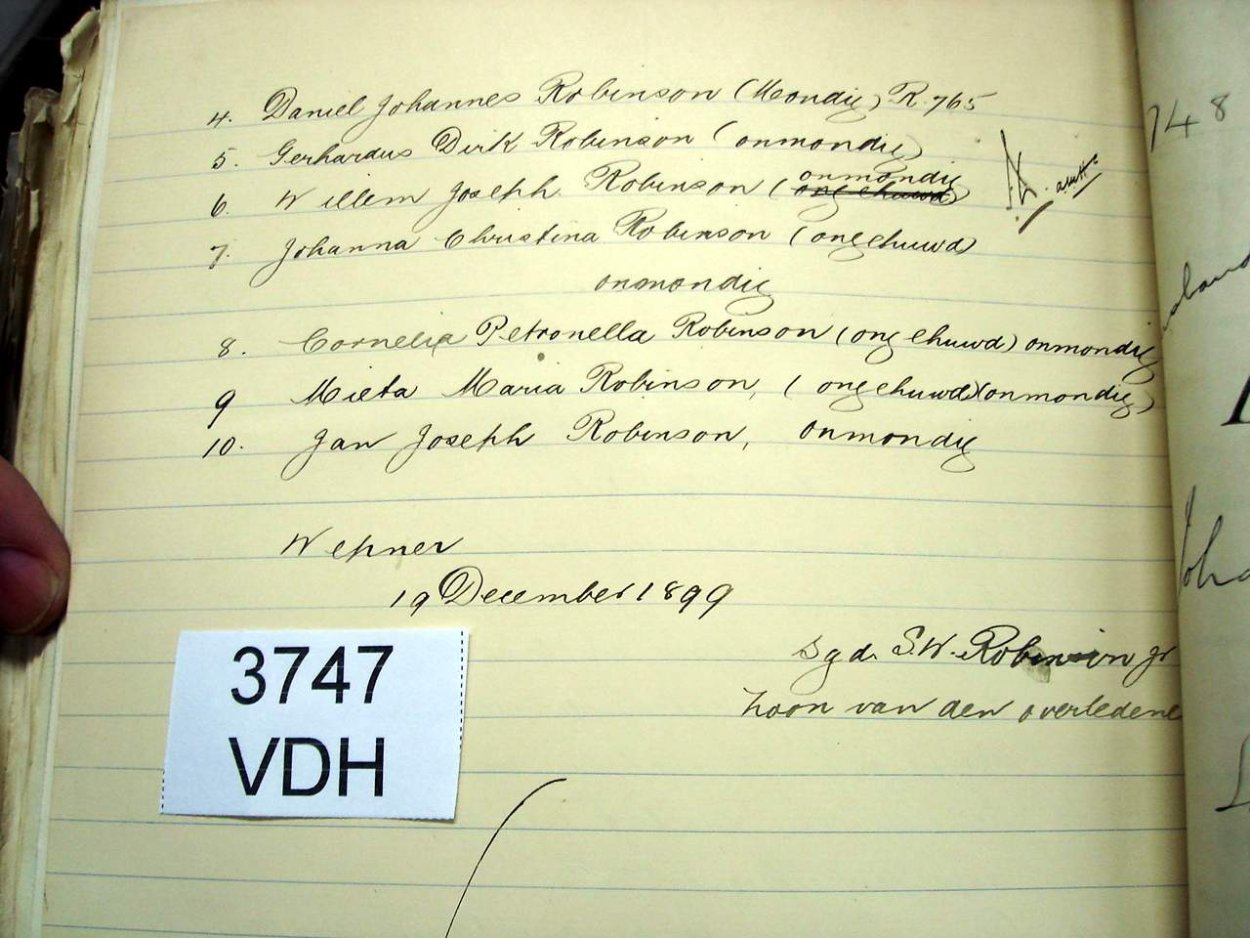 4. Daniel Johannes Robinson (Mondig) R. 765
5. Gerhardus Dirk Robinson (onmondig)
onmondig
6. Willem Joseph Robinson (ongehuwd)
7. Johanna Christina Robinson (ongehuwd)
onmondig
8. Cornelia Petronella Robinson (ongehuwd) onmondig
9 Mieta Maria Robinson, (ongehuwd) (onmondig)
10. Jan Joseph Robinson, onmondig
Wepner
19 December 1899
Sgd. S.W. Robinson jr
Zoon van den overledene
3747
VDH
748